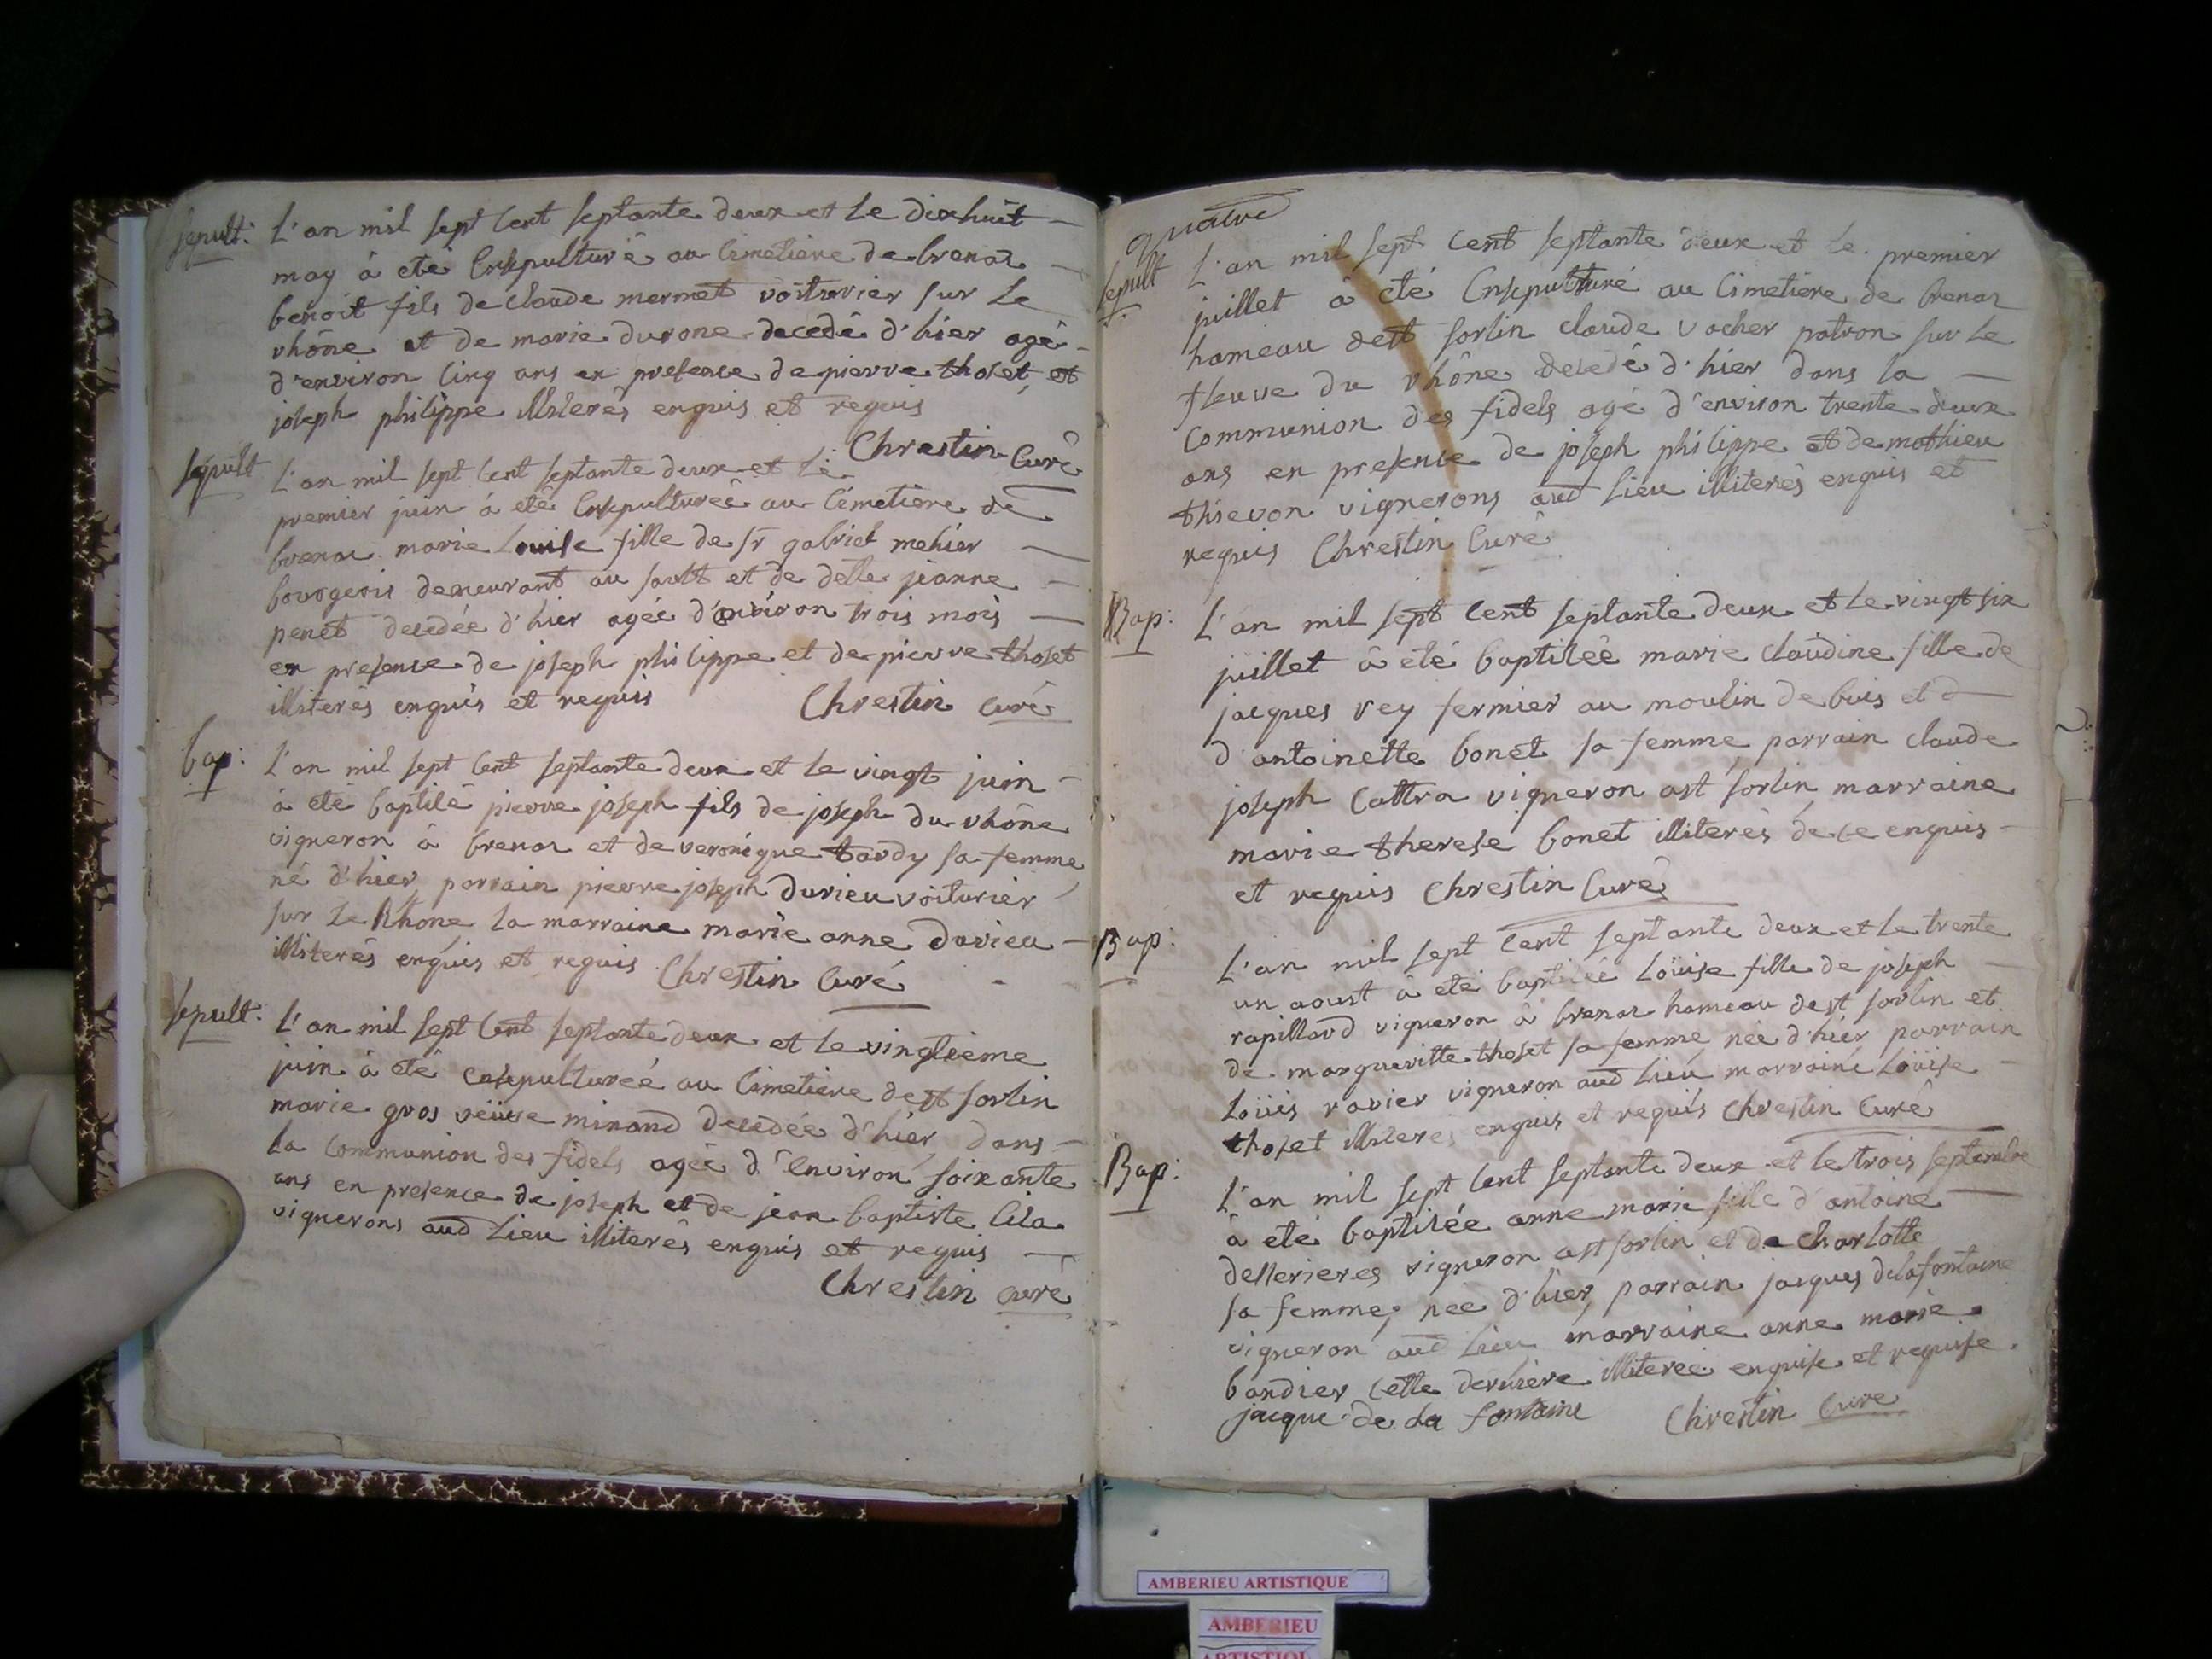 sepult: L'an mil sept cent septante deux et le dixhuit
may à eté ensepulturé au cimetiere de brenaz
benoit fils de claude mermet voiturier sur le
rhône et de marie durone decedé d'hier agé
d'environ cinq ans en presence de pierre thoset et
joseph philippe illiterés enquis et requis
Chrestin Curé
sepult L'an mil sept cent septante deux et le
premier juin à eté ensepulturée au cimetiere de
brenaz marie Louise fille de sr gabriel mehier
bourgeois demeurant au sault et de delle jeanne
penet decedée d'hier agée d'environ trois mois
en presence de joseph philippe et de pierre thoset
illiterés enquis et requis Chrestin curé
bap: L'an mil sept cent septante deux et le vingt juin
à eté baptisé pierre joseph fils de joseph du rhône
vigneron à brenaz et de veronique tardy sa femme
né d'hier, parrain pierre joseph durieu voiturier
sur le Rhone la marraine marie anne durieu
illiterés enquis et requis Chrestin Curé
sepult. L'an mil sept cent septante deux et le vingtieme
juin à eté ensepulturée au cimetiere de st sorlin
marie gros veüve minand decedée d'hier dans
la communion des fidels agée d'environ soixante
ans en presence de joseph et de jean baptiste
vignerons aud lieu illiterés enquis et requis
Chrestin curé
quatre
sepult L'an mil sept cent septante deux et le premier
juillet à eté ensepulturé au cimetiere de brenaz
hameau de st sorlin claude vacher patron sur le
fleuve du rhône decedé d'hier dans la
communion des fidels agé d'environ trente deux
ans en presence de joseph philippe et de mathieu
thievon vignerons aud lieu illiterés enquis et
requis Chrestin Curé
Bap: L'an mil sept cent septante deux et le vingt six
juillet à eté baptisée marie claudine fille de
jacques rey fermier au moulin de buis et d
d'antoinette bonet sa femme, parrain claude
joseph cattra vigneron a st sorlin, marraine
marie therese bonet illiterés de ce enquis
et requis Chrestin Curé
Bap: L'an mil sept cent septante deux et le trente
un aoust à eté baptisée Loüise fille de joseph
rapillard vigneron à brenaz hameau de st sorlin et
de margueritte thoset sa femme née d'hier parrain
Loüis ravier vigneron aud lieu marraine Loüise
thoset illiterés enquis et requis Chrestin Curé
Bap: L'an mil sept cent septante deux et le trois septembre
à eté baptisée anne marie fille d'antoine
desserieres vigneron a st sorlin et de charlotte
sa femme, née d'hier, parrain jacques delafontaine
vigneron aud lieu marraine anne marie
bandier cette derniere illiterée enquise et requise.
jacque de la fontaine Chrestin Curé
AMBERIEU ARTISTIQUE
AMBERIEU
ARTISTIQUE